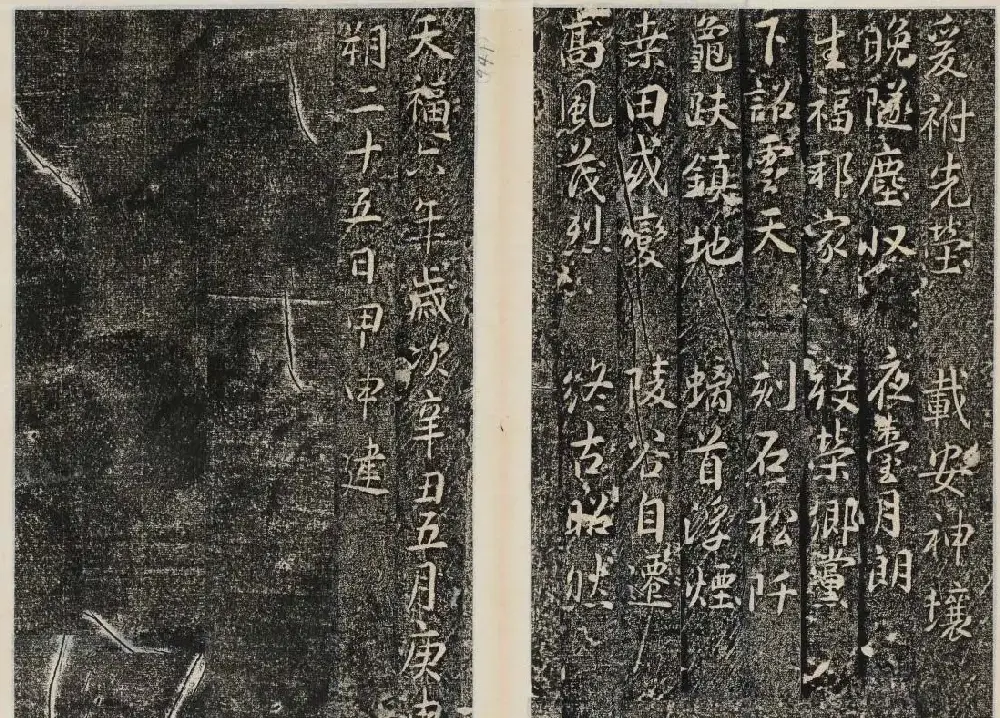 爰祔先塋 載安神壤
晚隧塵收 夜臺月朗
生福邦家 歿榮鄉黨
下詔雲天 刻石松阡
龜趺鎮地 螭首浮煙
桒田或變 陵谷自遷
高風茂烈 終古昭然
天福六年歲次辛丑五月庚申
朔二十五日甲申建